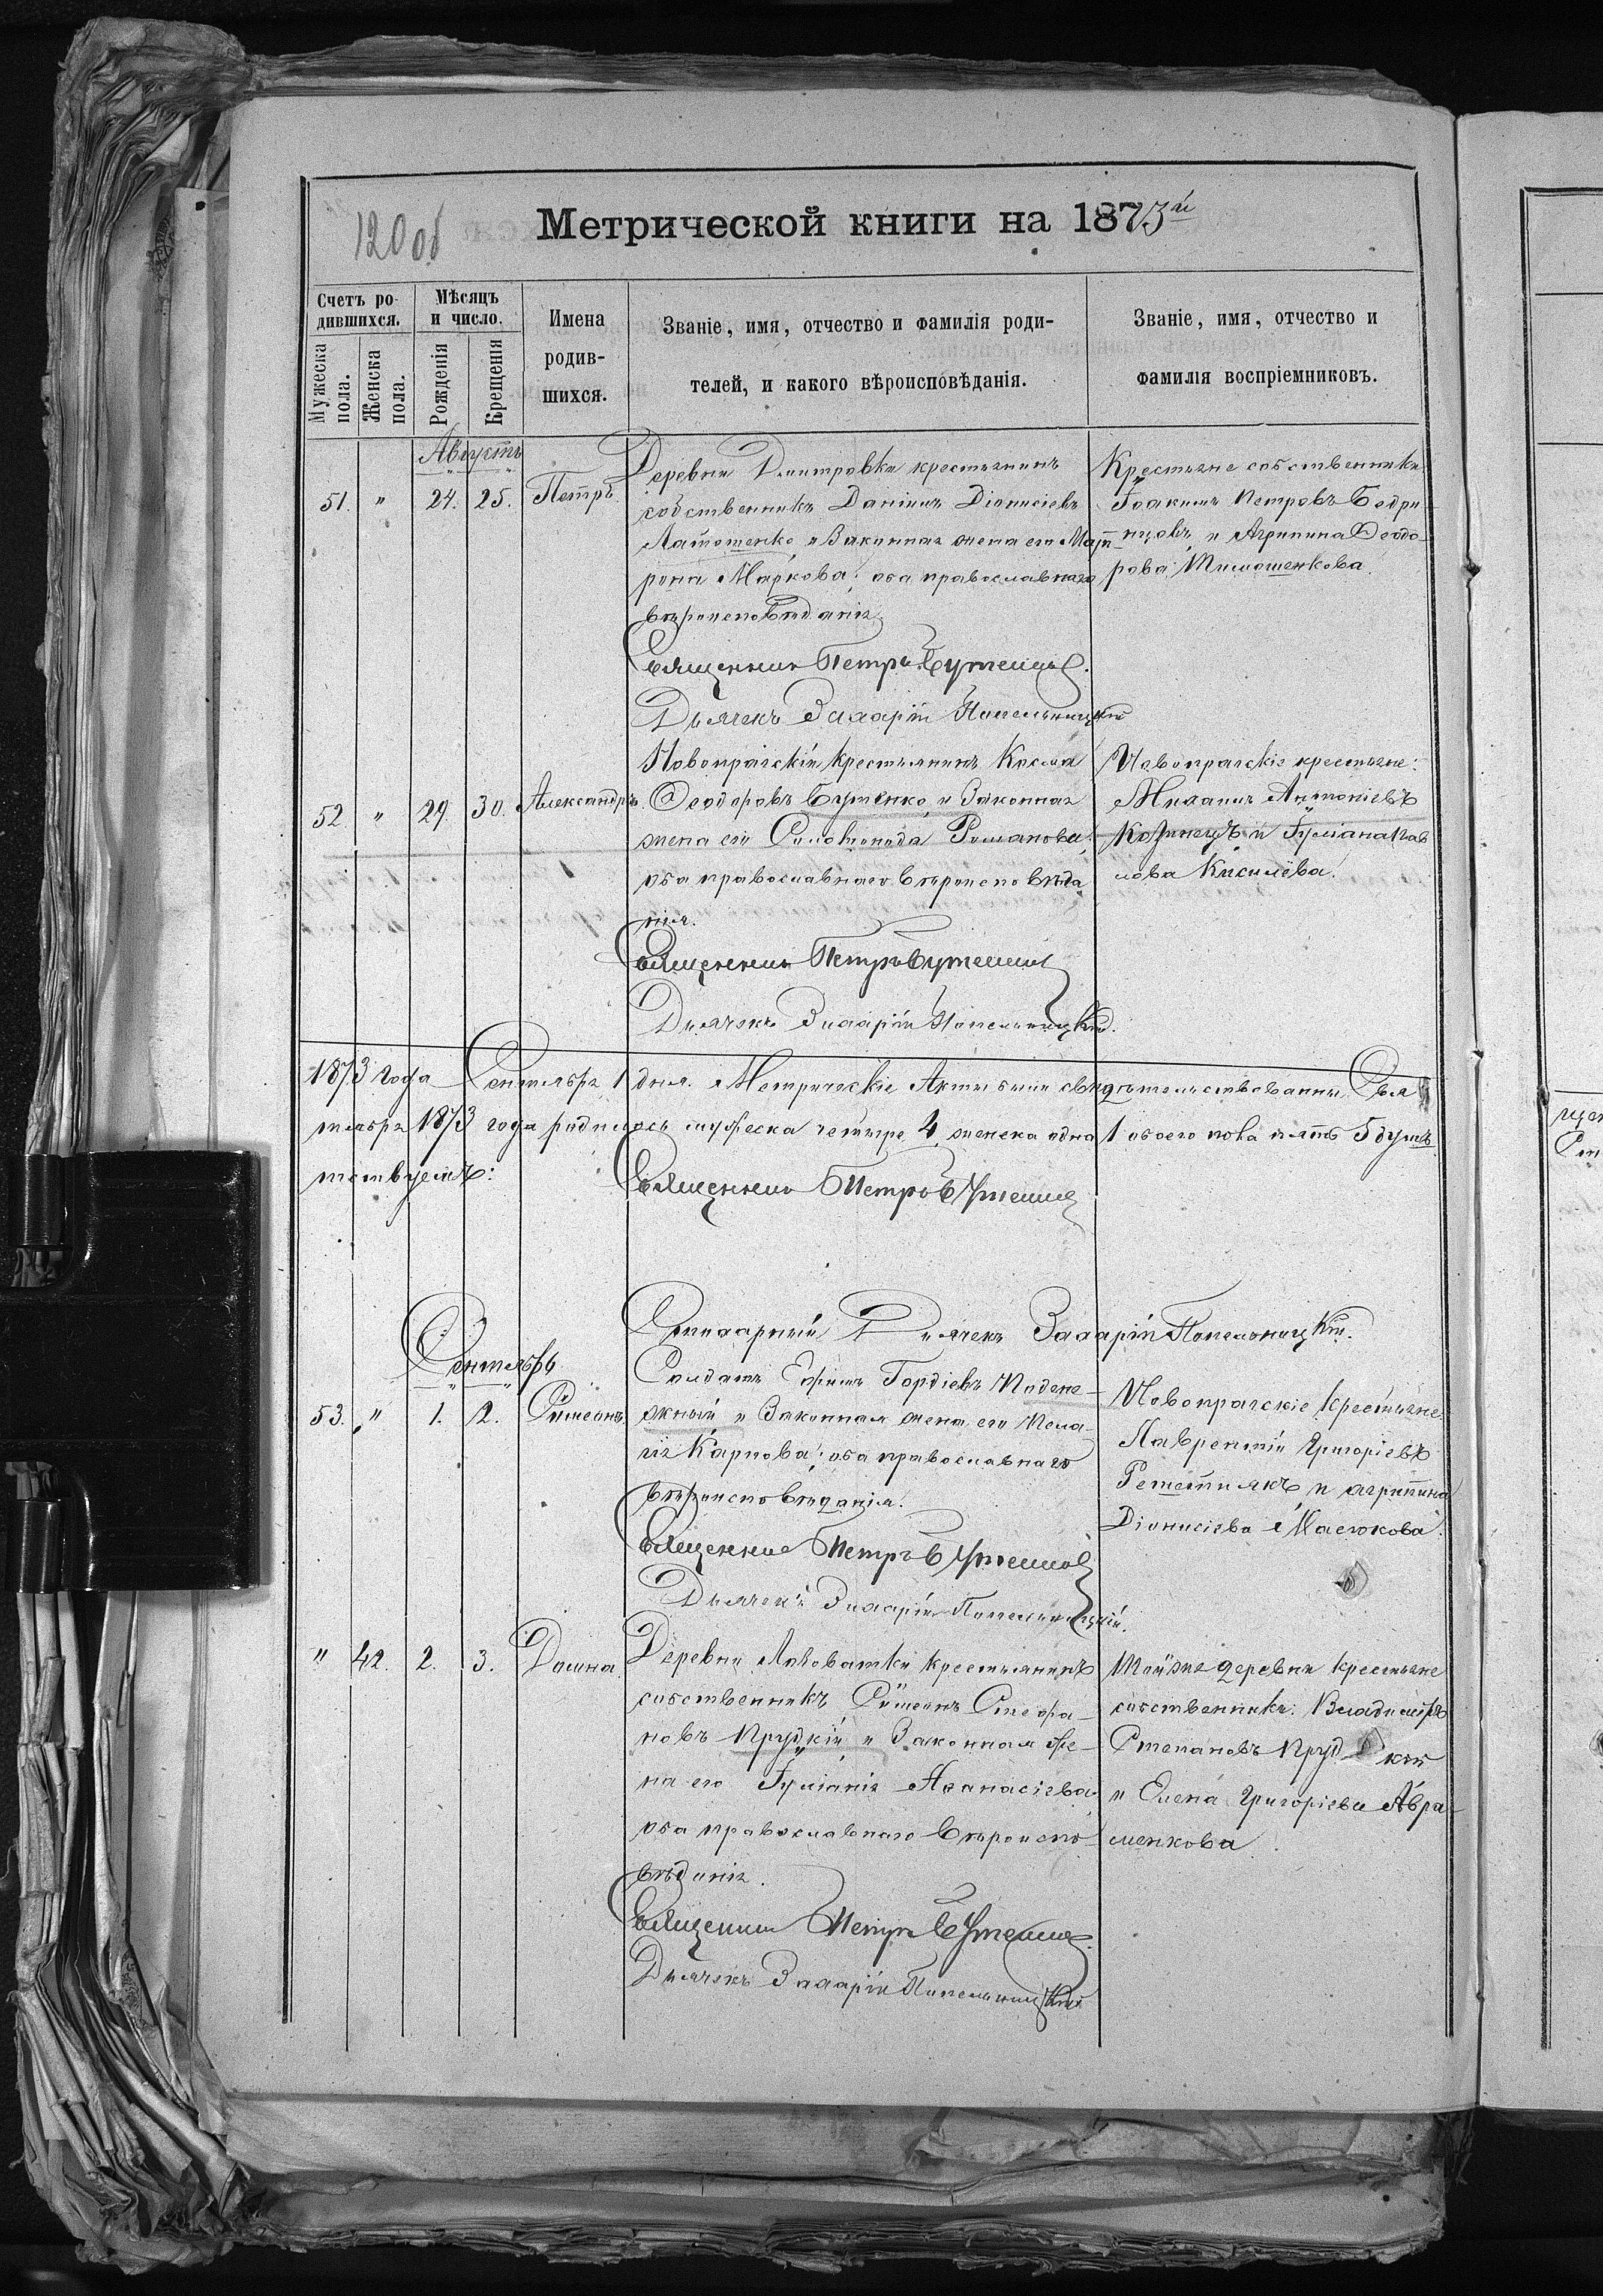 120 об
Метрической книги на 1873й
Счетъ ро-
дившихся.
Мѣсяцъ
и число.
Мужеска
пола.
Женска
пола.
Рожденія
Крещенія
Имена
родив-
шихся.
Званіе, имя, отчество и фамилія роди-
телей, и какого вѣроисповѣданія.
Званіе, имя, отчество и
фамилія воспріемниковъ.
Августъ
51. " 24. 25. Петръ.
Деревни Дмитровки крестьянинъ
собственникъ Даніилъ Діонисіевъ
Латошенко и Законная жена его Мат-
рона Маркова; оба православнаго
вѣроисповѣданія.
Священникъ Петръ
Дьячекъ Захарій Попельницкій
Крестьяне собственники
Іоакимъ Петровъ Бедри-
нцовъ и Агрипина Ѳеодо-
рова Тимошенкова.
52. " 29. 30. Александръ.
Новопражскій крестьянинъ Косма
Ѳеодоровъ Бутенко и Законная
жена его Романова;
оба православнаго вѣроисповѣда
нія.
Священникъ Петръ
Дьячекъ Захарій Попельницкій.
Новопражскіе крестьяне:
Михаилъ Антоніевъ
и Іуліана Пав
лова Киселёва.
1873 года Сентября 1 дня. Метрическіе Акты были свидѣтельствованы.
1873 года родилось мужеска четыре 4, женска одна 1 обоего пола пять 5 душъ
Священникъ Петръ
Дьячекъ Захарій Попельницкій.
Сентябрь
53. " 1. 2. Симеонъ
Солдатъ Ефимъ Гордіевъ Подене-
жный и Законная жена его Пела-
гія Карпова; оба православнаго
вѣроисповѣданія.
Священникъ Петръ
Дьячекъ Захарій Попельницкій.
Новопражскіе крестьяне:
Лаврентій Григоріевъ
Решетнякъ и Агрипина
Діонисіева Масюкова.
" 42. 2. 3. Домна.
Деревни Лозоватки крестьянинъ
собственникъ Симеонъ Стефа-
новъ Прудкій и Законная же-
на его Іуліанія Аѳанасіева
оба православнаго вѣроиспо
вѣданія.
Священникъ Петръ
Дьячекъ Захарій Попельницкій
Тойже деревни крестьяне
собственники: Владиміръ
Степановъ Пруд кій
и Елена Григоріева Авра-
менкова.